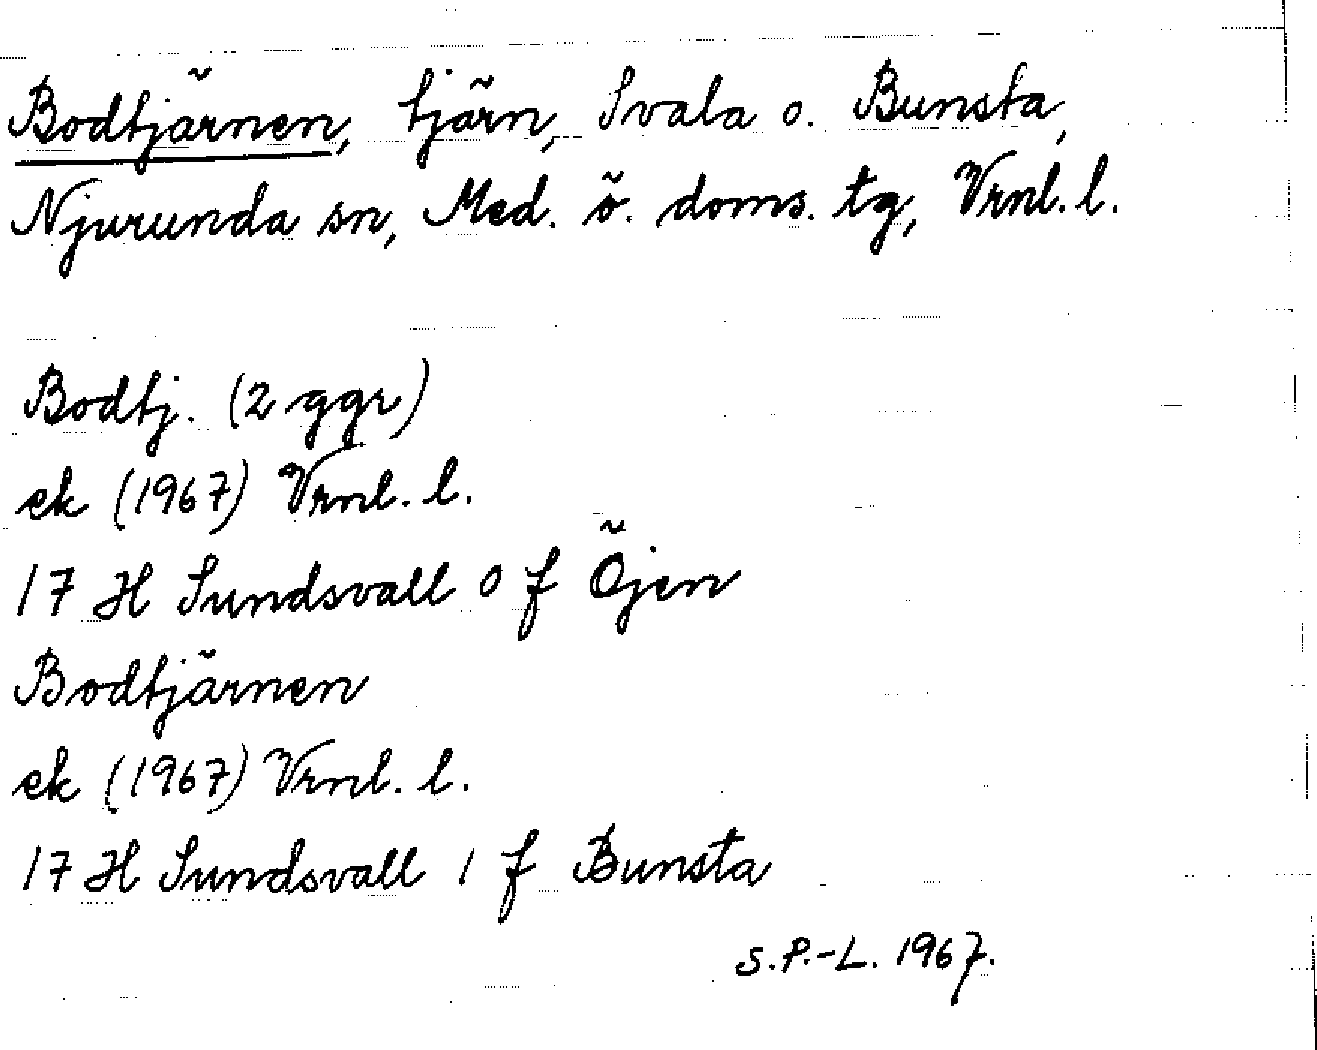 Bodtjärnen, tjärn, Svala o. Bunsta,
Njurunda sn, Med. ö. doms. tg, Vrnl. l.
Bodtj. (2 ggr)
ek (1967) Vrnl. l.
17 H Sundsvall 0 f Öjen
Bodtjärnen
ek (1967) Vrnl. l.
17 H Sundsvall 1 f Bunsta
S.P.-L. 1967.